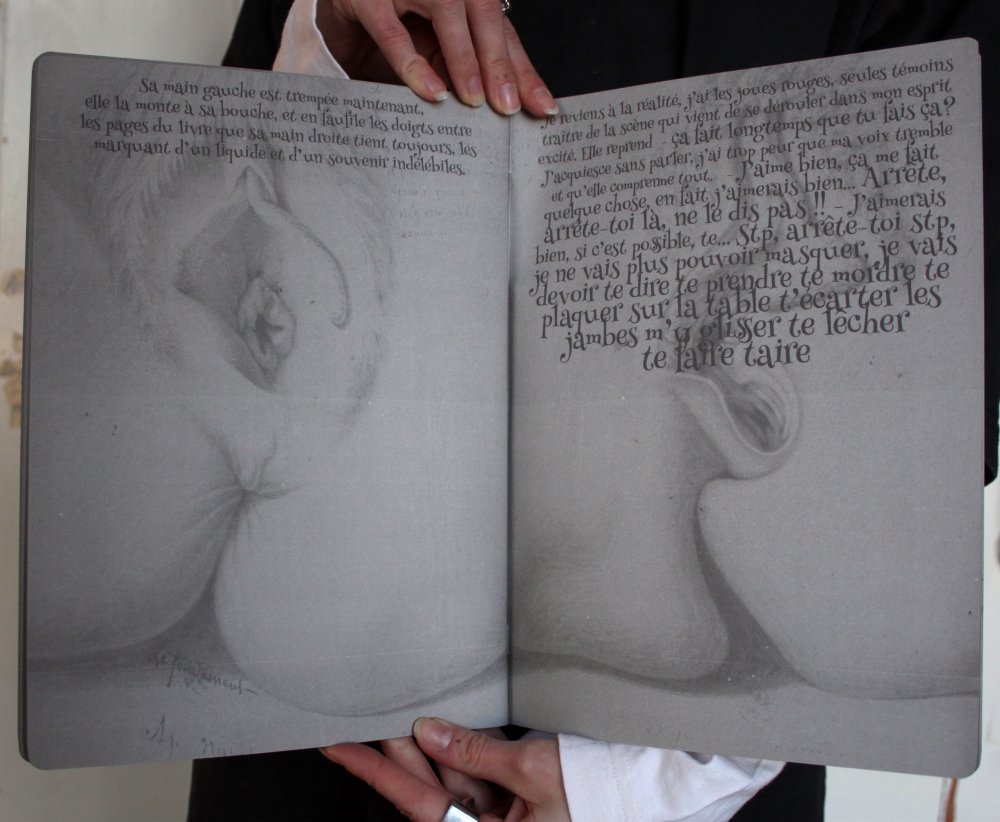 Sa main gauche est trempée maintenant,
elle la monte à sa bouche, et en faufile les doigts entre
les pages du livre que sa main droite tient, toujours, les
marquant d'un liquide et d'un souvenir indélébiles.
Je reviens à la réalité, j'ai les joues rouges, seules témoins
traître de la scène qui vient de se dérouler dans mon esprit
excité. Elle reprend - ça fait longtemps que tu fais ça?
J'acquiesce sans parler, j'ai trop peur que ma voix tremble
et qu'elle comprenne tout. - J'aime bien, ça me fait
quelque chose, en fait j'aimerais bien... Arrête,
arrête-toi là, ne le dis pas !! - J'aimerais
bien, si c'est possible, te... Stp, arrête-toi stp,
je ne vais plus pouvoir masquer, je vais
devoir te dire te prendre te mordre te
plaquer sur la table t'écarter les
jambes m'y glisser te lécher
te faire taire